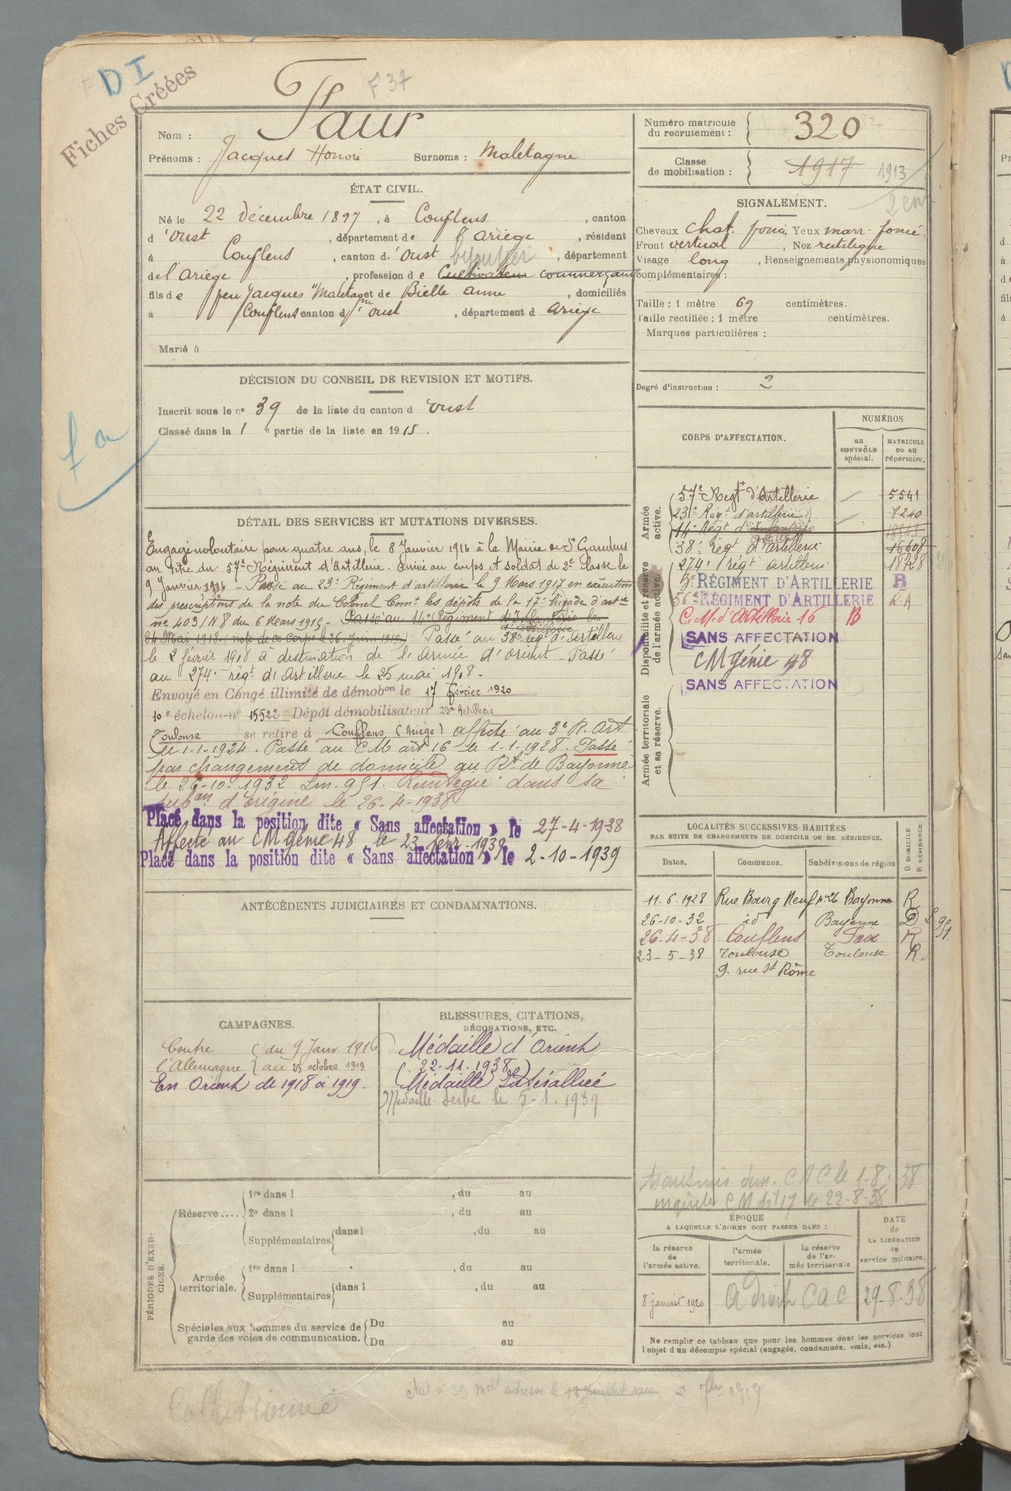 D I
Fiches Créées
F 37
Nom : Faur
Prénoms : Jacques Honoré Surnoms : Maletagne
Numéro matricule du recrutement : 320
Classe de mobilisation : 1917 1913
ÉTAT CIVIL.
Né le 22 décembre 1897, à Couflens, canton
d'Oust, département de l'Ariège, résidant
à Couflens, canton d'Oust, département
de l'Ariège, profession de Cultivateur commerçant
fils de feu Jacques "Maletag et de Bielle Anne, domiciliés
à Couflens canton d'Oust, département d Ariège
Marié à
SIGNALEMENT.
Cheveux chat. foncé, Yeux marr. foncé
Front vertical, Nez rectiligne
Visage long, Renseignements physionomiques
complémentaires :
Taille : 1 mètre 69 centimètres.
Taille rectifiée : 1 mètre centimètres.
Marques particulières :
Degré d'instruction : 2
DÉCISION DU CONSEIL DE REVISION ET MOTIFS.
Inscrit sous le n° 39 de la liste du canton d Oust
Classé dans la 1 e partie de la liste en 1915.
DÉTAIL DES SERVICES ET MUTATIONS DIVERSES.
Engagé volontaire pour quatre ans, le 8 Janvier 1916 à la Mairie de St Gaudens
au titre du 57e Régiment d'Artillerie. Arrivé au corps et soldat de 2e classe le
9 Janvier 1916 - Passé au 23e Régiment d'artillerie le 9 Mars 1917 en exécution
des prescriptions de la note du Colonel Comt les dépôts de la 17e brigade d'artie
no 403/18 du 6 Mars 1917 - Passé au 14e Régiment d'Infanterie le
24 Mai 1918 (note de ce Corps le 26 Juin 1919) Passé au 38e régt d'artillerie
le 2 février 1918 à destination de l'Armée d'Orient - Passé
au 274e régt d'Artillerie le 25 mai 1918 -
Envoyé en Congé illimité de démobon le 17 février 1920
10e échelon - n° 15522 Dépôt démobilisateur 23e Artillerie
Toulouse se retire à Couflens (Ariège) affecté au 3e R. Art
le 1-1-1924. Passé au CM art 16 le 1-1-1928. Passé
par changement de domicile au Rt de Bayonne
le 26-10-1932 Lm. 951. Réintégré dans sa
subon d'origine le 26-4-1938
Placé dans la position dite « Sans affectation » le 27-4-1938
Affecté au CM Génie 48 le 23 1939
Placé dans la position dite « Sans affectation » le 2-10-1939
CORPS D'AFFECTATION.
NUMÉROS
au CONTRÔLE spécial.
MATRICULE ou au répertoire.
Armée active.
57e Regt d'Artillerie 5541
23e Régt d'artillerie 8240
14e Régt d'Infanterie
38e régt d'artillerie 16608
Disponibilité et réserve de l'armée active.
274e régt artillerie 18428
RÉGIMENT D'ARTILLERIE B
RÉGIMENT D'ARTILLERIE R.A
C.M. d'Artillerie 16 B
SANS AFFECTATION
CM génie 48
SANS AFFECTATION
Armée territoriale et sa réserve.
ANTÉCÉDENTS JUDICIAIRES ET CONDAMNATIONS.
LOCALITÉS SUCCESSIVES HABITÉES
PAR SUITE DE CHANGEMENTS DE DOMICILE OU DE RÉSIDENCE.
Dates. Communes. Subdivisions de région D DOMICILE R RÉSIDENCE
11-6-1928 Rue Bourg Neuf n° 26 Bayonne R
26-10-32 id Bayonne D L 951
26-4-38 Couflens Foix R
23-5-38 Toulouse Toulouse R.
9. rue St Rôme
CAMPAGNES.
Contre l'Allemagne ( du 9 Janv. 1916
au 23 octobre 1919
En Orient de 1918 à 1919.
BLESSURES, CITATIONS, DÉCORATIONS, ETC.
Médaille d'Orient
(22-11-1938)
(Médaille Interalliée
Médaille Serbe le 5-1-1939
transmis C A C le 1-8-38
CM Art 17 le 22-8-38
PÉRIODES D'EXERCICES.
Réserve .... 1re dans l , du au
2e dans l , du au
Supplémentaires dans l , du au
Armée territoriale. 1re dans l , du au
Supplémentaires dans l , du au
Spéciales aux hommes du service de garde des voies de communication. Du au
Du au
ÉPOQUE
A LAQUELLE L'HOMME DOIT PASSER DANS :
la réserve de l'armée active.
l'armée territoriale.
la réserve de l'armée territoriale
DATE de LA LIBÉRATION du service militaire.
8 janvier 1920 A droit C A C 29-8-38
Ne remplir ce tableau que pour les hommes dont les services font l'objet d'un décompte spécial (engagés, condamnés, omis, etc.)
Collationné